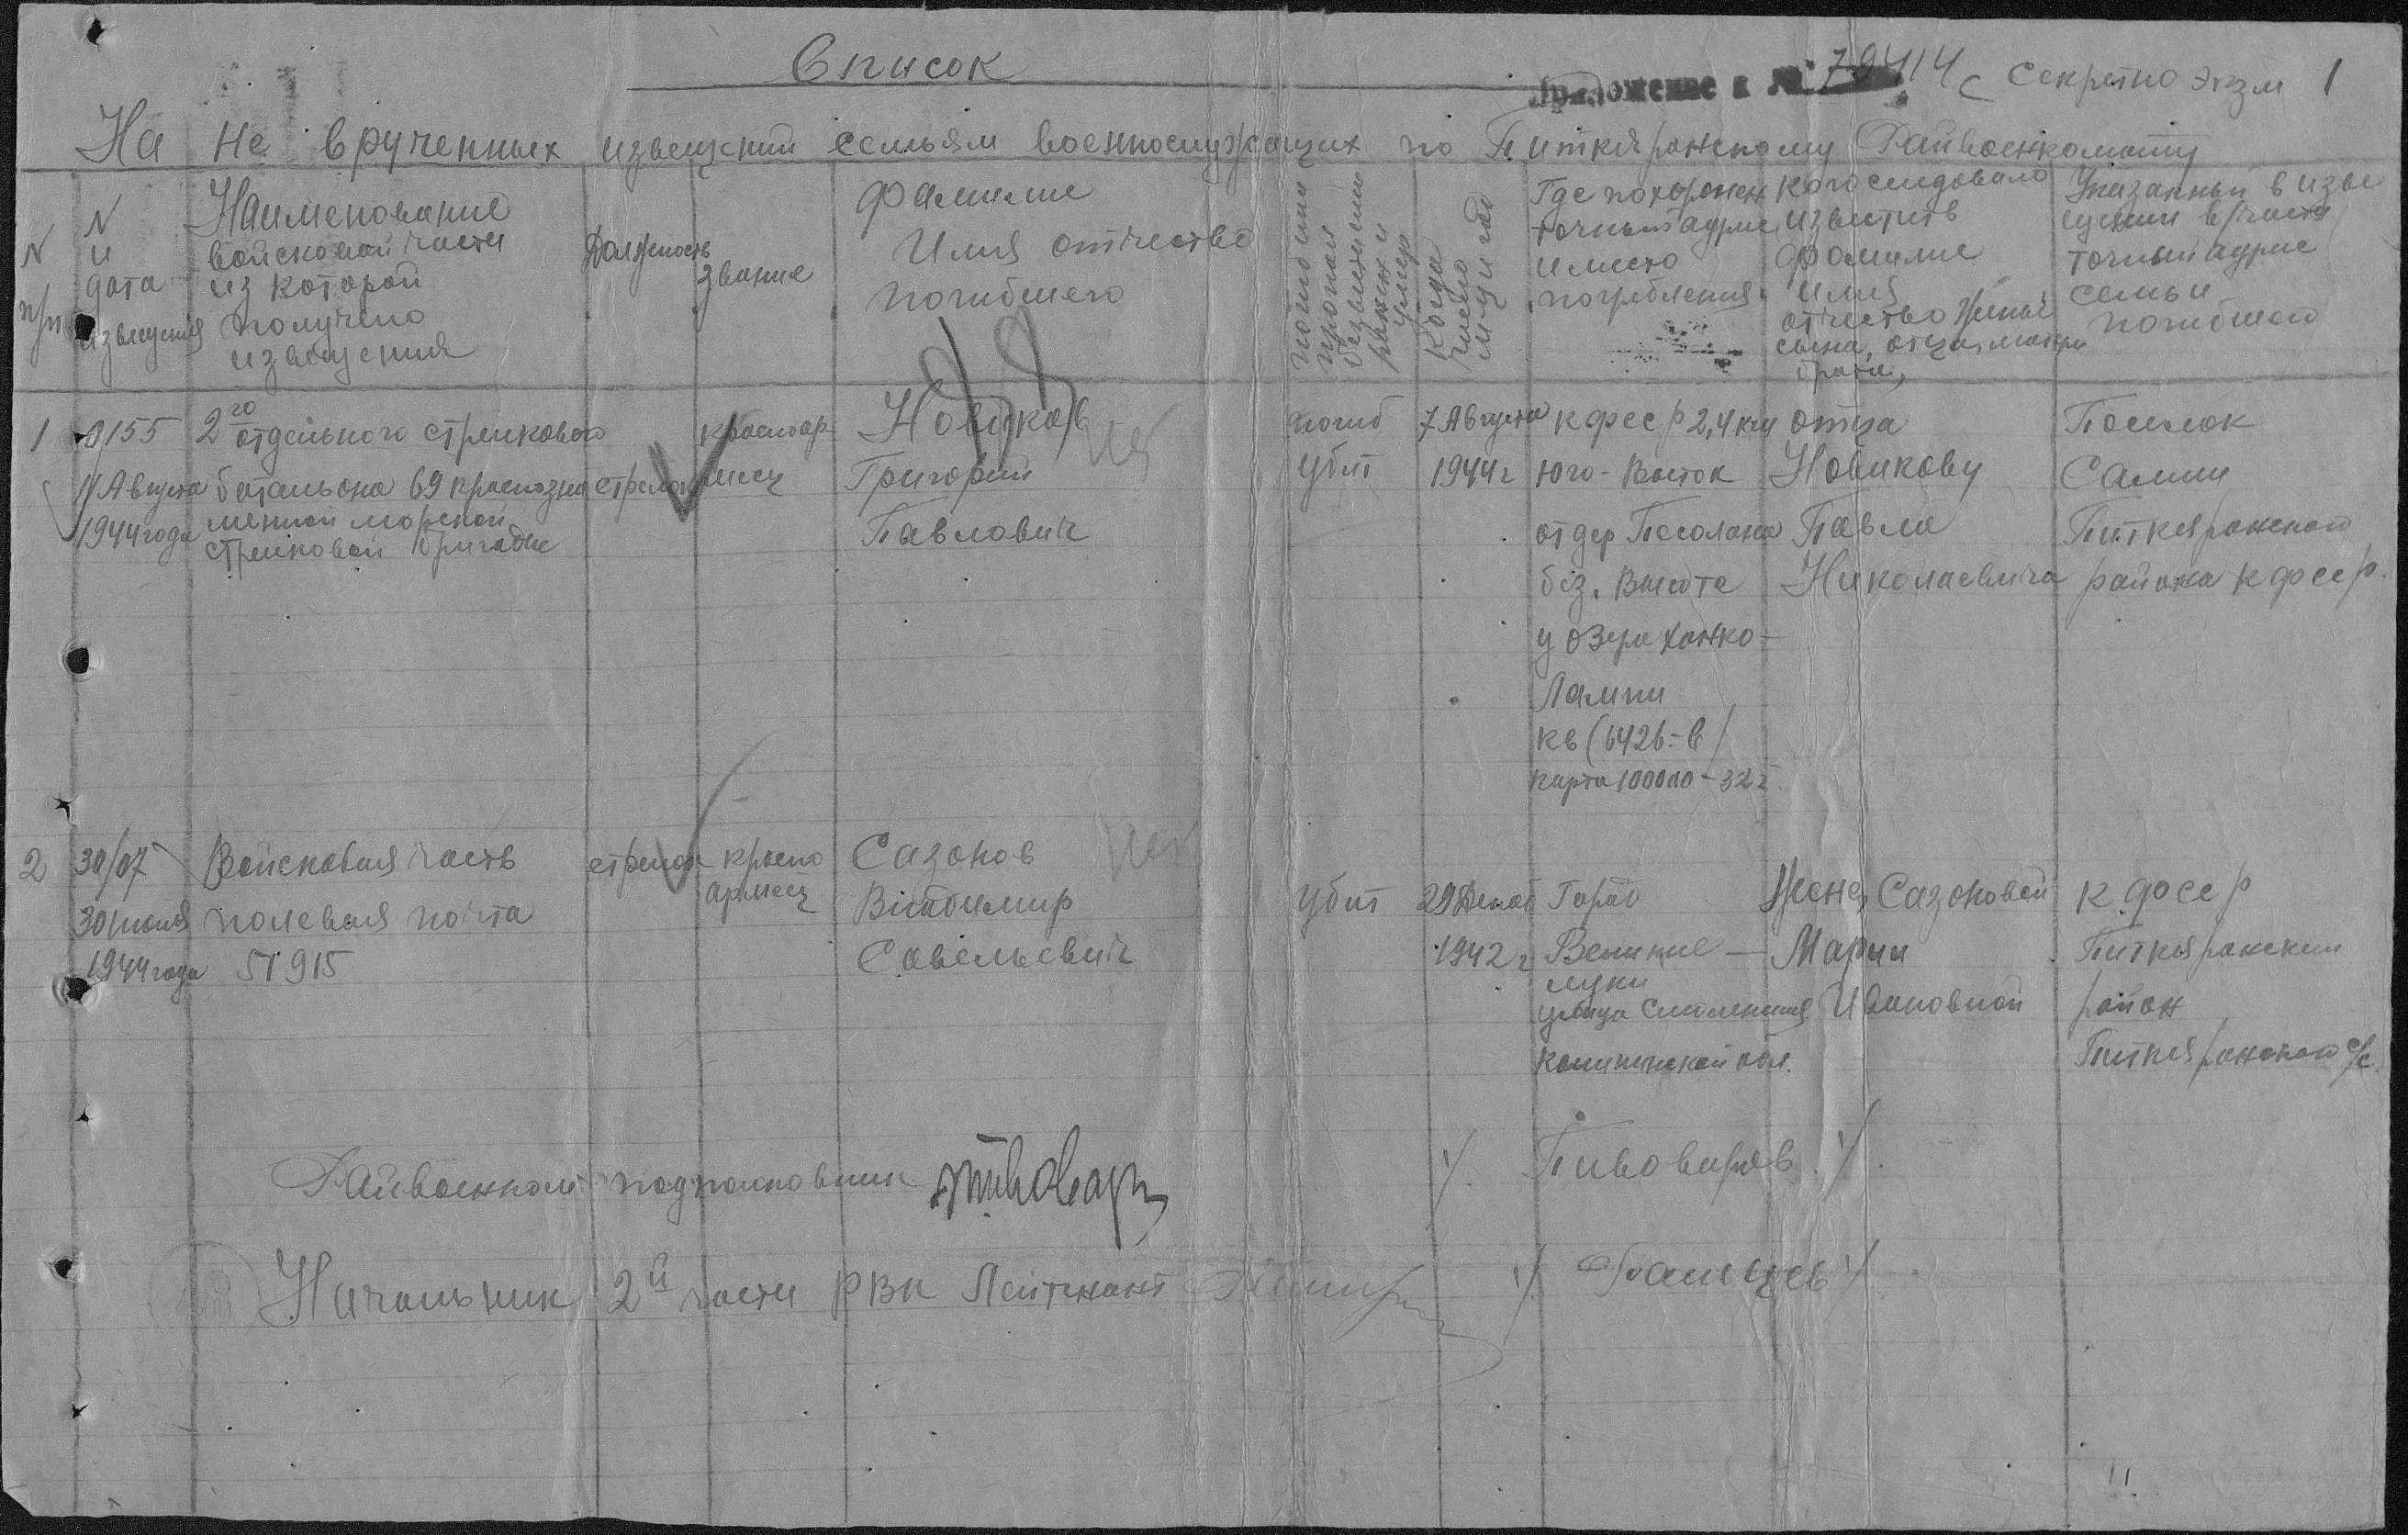 Список
Приложение к № 79414 с Секретно экзм 1
На не врученных извещений семьям военнослужащих по Питкяранскому Райвоенкомату
N п/п
N и дата извещения
Наименование
войсковой части
из которой
получено
извещения
Должность
звание
Фамилие
Имя отчество
погибшего
погиб или
пропал
безвести или
ранен и
умер
Когда
число
м-ц и год
Где похоронен
точный адрес
и место
погребения
кого следовало
известить
Фамилие
имя
отчество жены
сына, отца, матери
брата,
Указанный в изве
щении в/части
точный адрес
семьи
погибшего
1
0155
11 Августа
1944 года
2го отдельного стрелкового
батальона 69 краснозна
менной морской
стрелковой бригады
стрелок
красноар
меец
Новиков
Григорий
Павлович
погиб
убит
7 Августа
1944 г
КФССР 2,4 км
Юго-Восток
от дер Песолана
без. Высоте
у озера Ханко-
Лампи
кв (6426-в/
карта 100000-32 г.
отца
Новикову
Павла
Николаевича
Поселок
Салми
Питкяранского
района КФССР.
2
30/07
30 июля
1944 года
Войсковая часть
полевая почта
51915
стрелок
красно
армеец
Сазонов
Владимир
Савельевич
убит
29 Декаб
1942 г
Город
Великие -
Луки
улица Смоленская
Калининской обл.
Жене, Сазоновой
Марии
Ивановной
КФССР
Питкярански
район
Питкяранского с/с.
Райвоенком подполковник
/. Пивоваров ./.
Начальник 2й части РВК Лейтенант